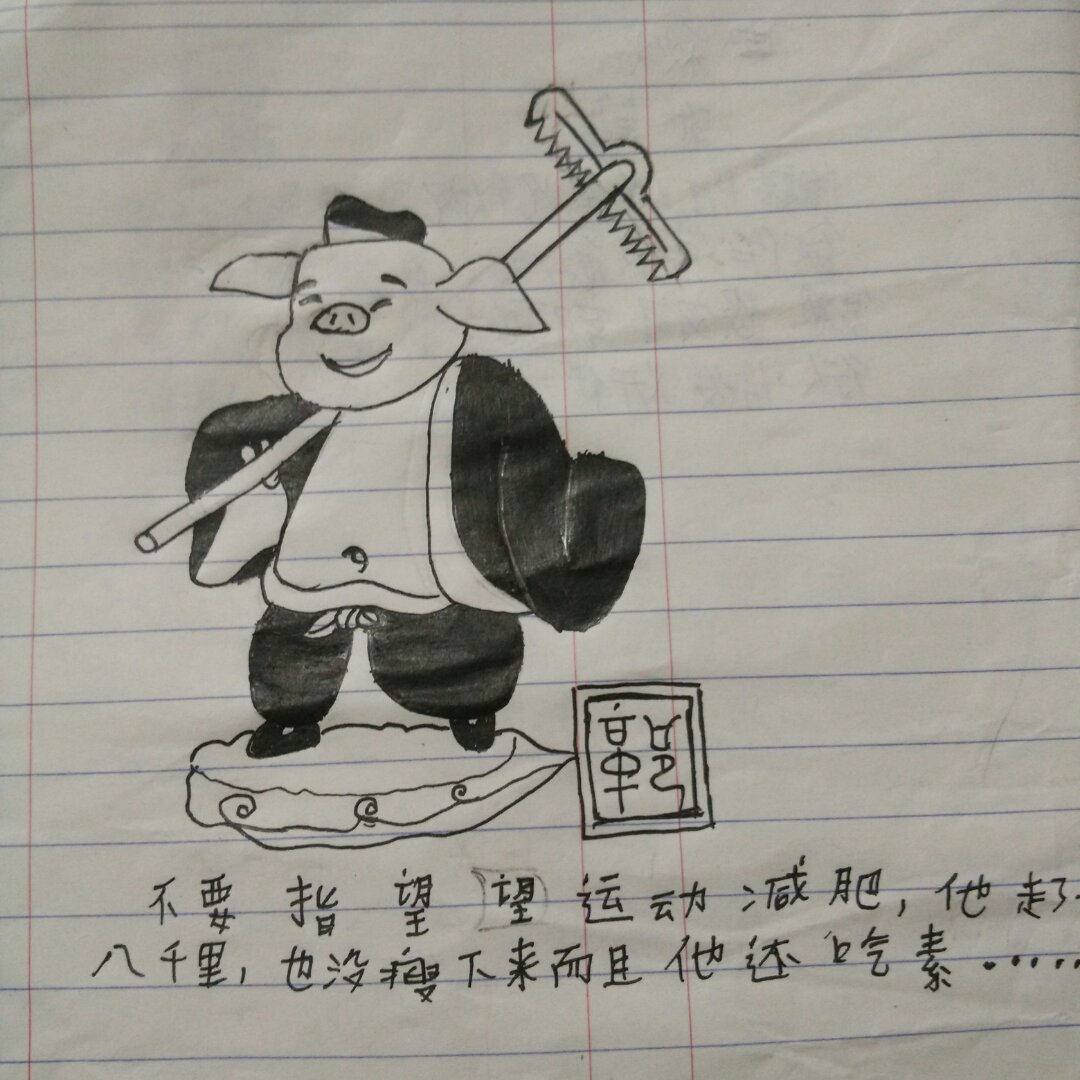 郭
不要指望(望)运动减肥，他走了
八千里，也没瘦下来而且他还吃素......